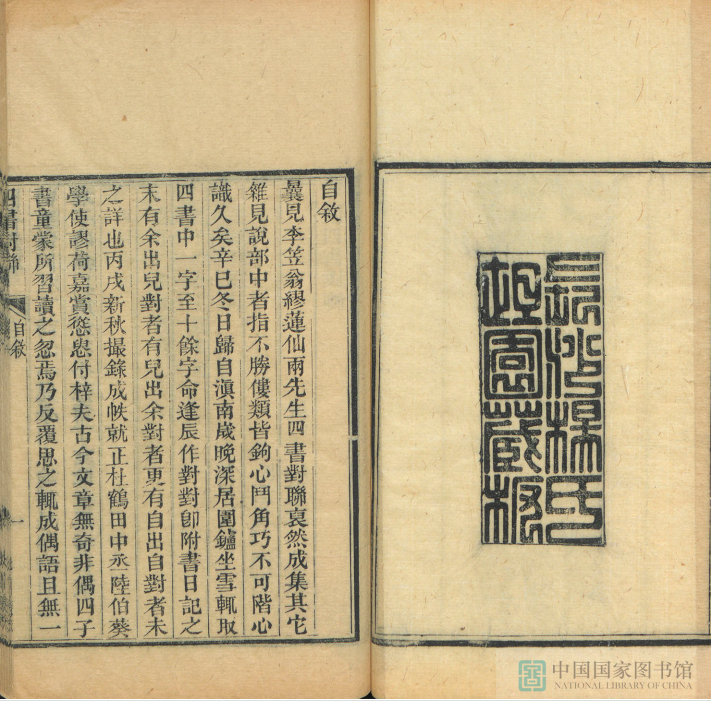 長沙楊氏
坦園藏板
自敘
曩見李笠翁繆蓮仙兩先生四書對聯裒然成集其它
雜見說部中者指不勝僂類皆鉤心鬥角巧不可階心
識久矣辛巳冬日歸自滇南歲晚深居圍鑪坐雪輒取
四書中一字至十餘字命逢辰作對對卽附書日記之
末有余出兒對者有兒出余對者更有自出自對者未
之詳也丙戌新秋撮錄成帙就正杜鶴田中丞陸伯葵
學使謬荷嘉賞慫恿付梓夫古今文章無奇非偶四子
書童蒙所習讀之忽焉乃反覆思之輒成偶語且無一
四書對聯
自敘
一
中国国家图书馆
NATIONAL LIBRARY OF CHINA